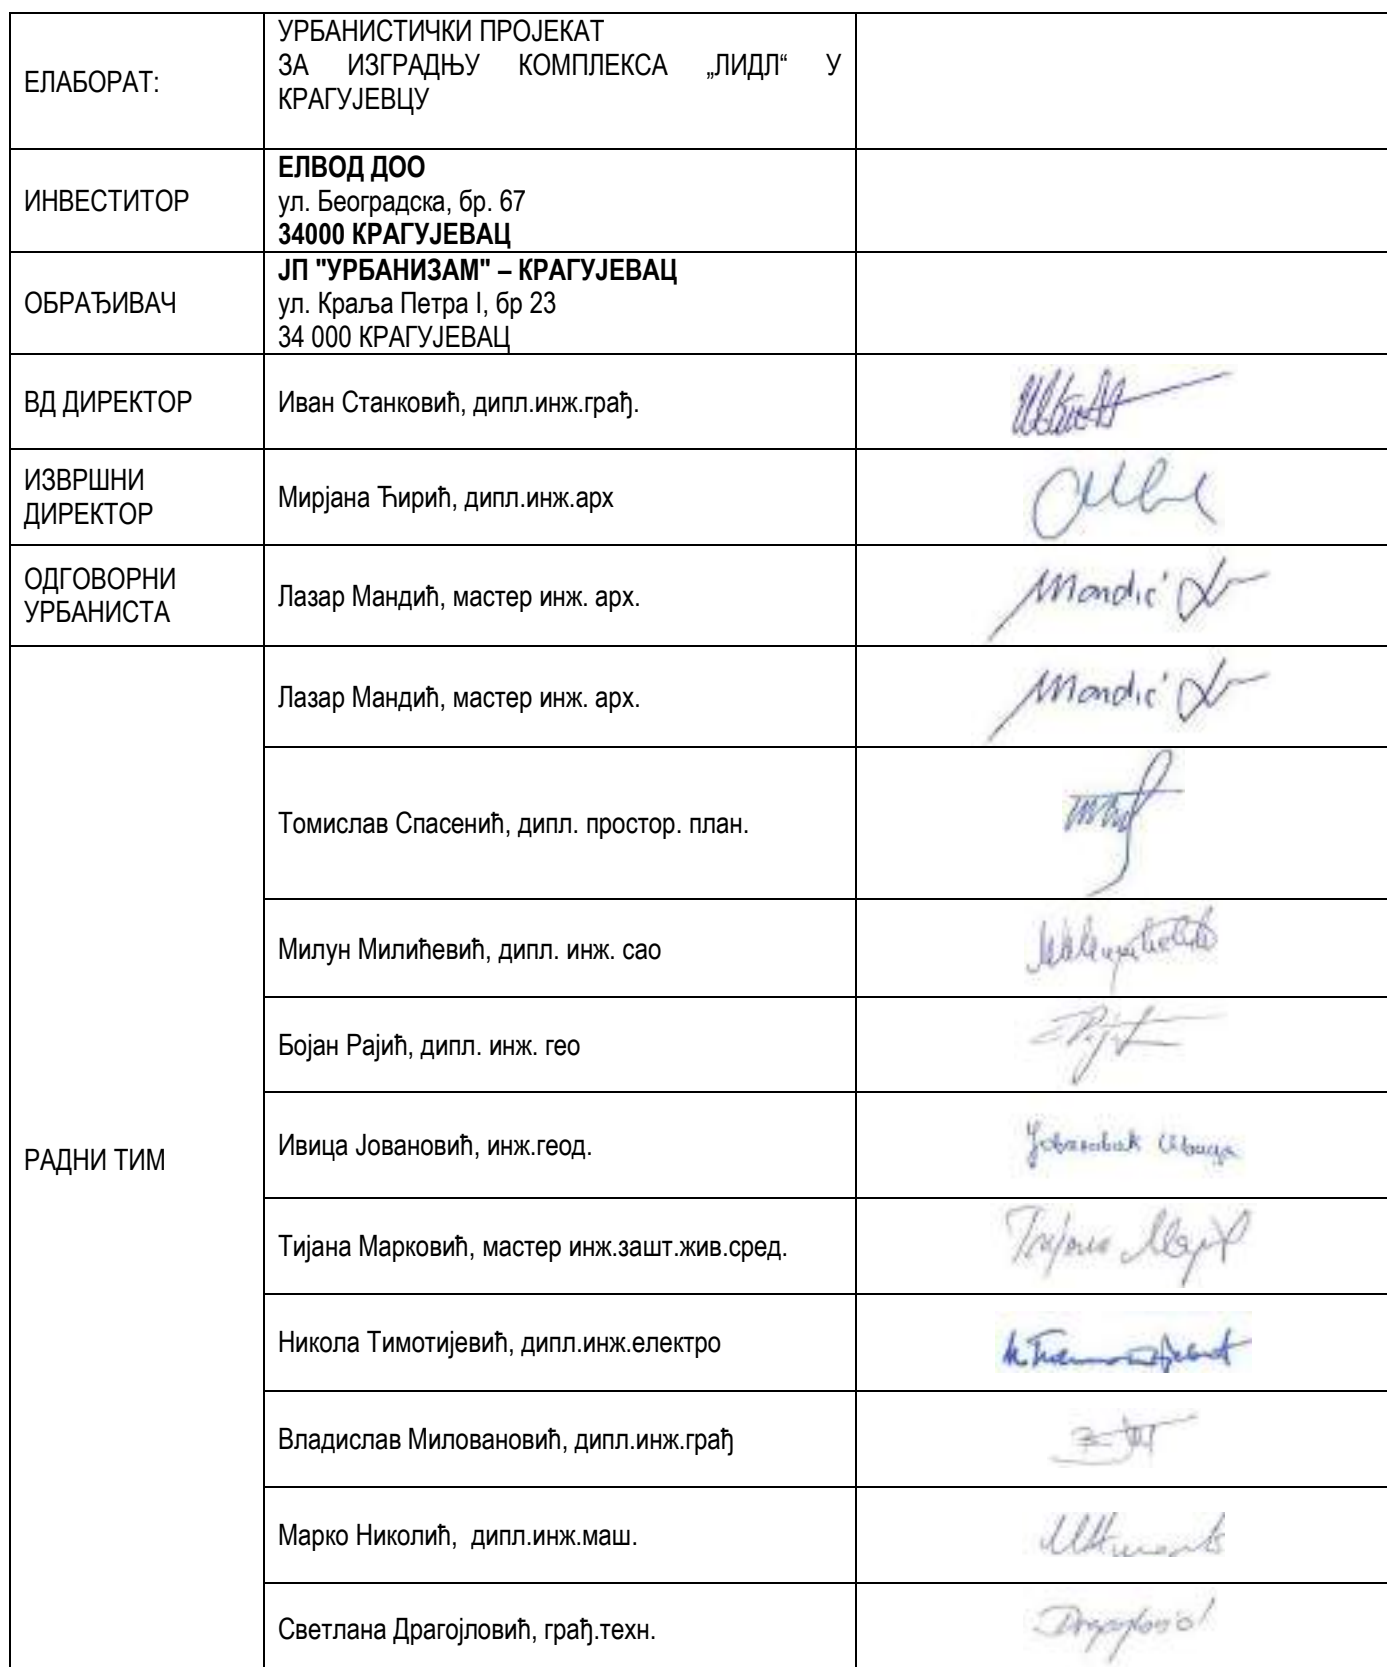 ЕЛАБОРАТ:
УРБАНИСТИЧКИ ПРОЈЕКАТ
ЗА ИЗГРАДЊУ КОМПЛЕКСА „ЛИДЛ“ У
КРАГУЈЕВЦУ
ИНВЕСТИТОР
ЕЛВОД ДОО
ул. Београдска, бр. 67
34000 КРАГУЈЕВАЦ
ОБРАЂИВАЧ
ЈП "УРБАНИЗАМ" – КРАГУЈЕВАЦ
ул. Краља Петра I, бр 23
34 000 КРАГУЈЕВАЦ
ВД ДИРЕКТОР
Иван Станковић, дипл.инж.грађ.
ИЗВРШНИ
ДИРЕКТОР
Мирјана Ћирић, дипл.инж.арх
ОДГОВОРНИ
УРБАНИСТА
Лазар Мандић, мастер инж. арх.
Mandić
РАДНИ ТИМ
Лазар Мандић, мастер инж. арх.
Mandić
Томислав Спасенић, дипл. простор. план.
Милун Милићевић, дипл. инж. сао
Бојан Рајић, дипл. инж. гео
Ивица Јовановић, инж.геод.
Јовановић Ивица
Тијана Марковић, мастер инж.зашт.жив.сред.
Никола Тимотијевић, дипл.инж.електро
Владислав Миловановић, дипл.инж.грађ
Марко Николић, дипл.инж.маш.
Светлана Драгојловић, грађ.техн.